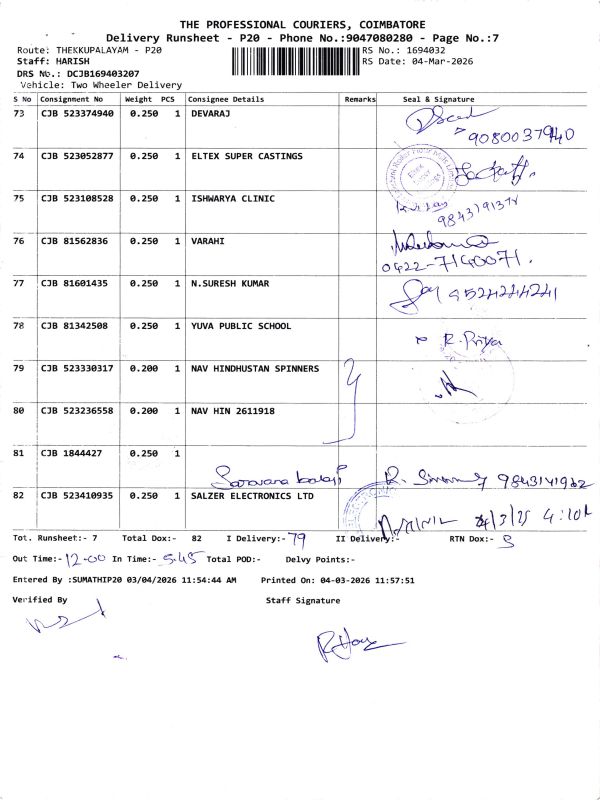 THE PROFESSIONAL COURIERS, COIMBATORE
Delivery Runsheet - P20 - Phone No.:9047080280 - Page No.:7
Route: THEKKUPALAYAM - P20
RS No.: 1694032
Staff: HARISH
RS Date: 04-Mar-2026
DRS No.: DCJB169403207
Vehicle: Two Wheeler Delivery
S No Consignment No Weight PCS Consignee Details Remarks Seal & Signature
73 CJB 523374940 0.250 1 DEVARAJ
9080037940
74 CJB 523052877 0.250 1 ELTEX SUPER CASTINGS
75 CJB 523108528 0.250 1 ISHWARYA CLINIC
76 CJB 81562836 0.250 1 VARAHI
0422-7140071.
77 CJB 81601435 0.250 1 N.SURESH KUMAR
9524244241
78 CJB 81342508 0.250 1 YUVA PUBLIC SCHOOL
R. Priya
79 CJB 523330317 0.200 1 NAV HINDHUSTAN SPINNERS
80 CJB 523236558 0.200 1 NAV HIN 2611918
81 CJB 1844427 0.250 1
Saravana balaji 9843141962
82 CJB 523410935 0.250 1 SALZER ELECTRONICS LTD
Tot. Runsheet:- 7 Total Dox:- 82 I Delivery:- 79 II Delivery:- RTN Dox:- 3
Out Time:- 12-00 In Time:- 5.45 Total POD:- Delvy Points:-
Entered By :SUMATHIP20 03/04/2026 11:54:44 AM Printed On: 04-03-2026 11:57:51
Verified By Staff Signature